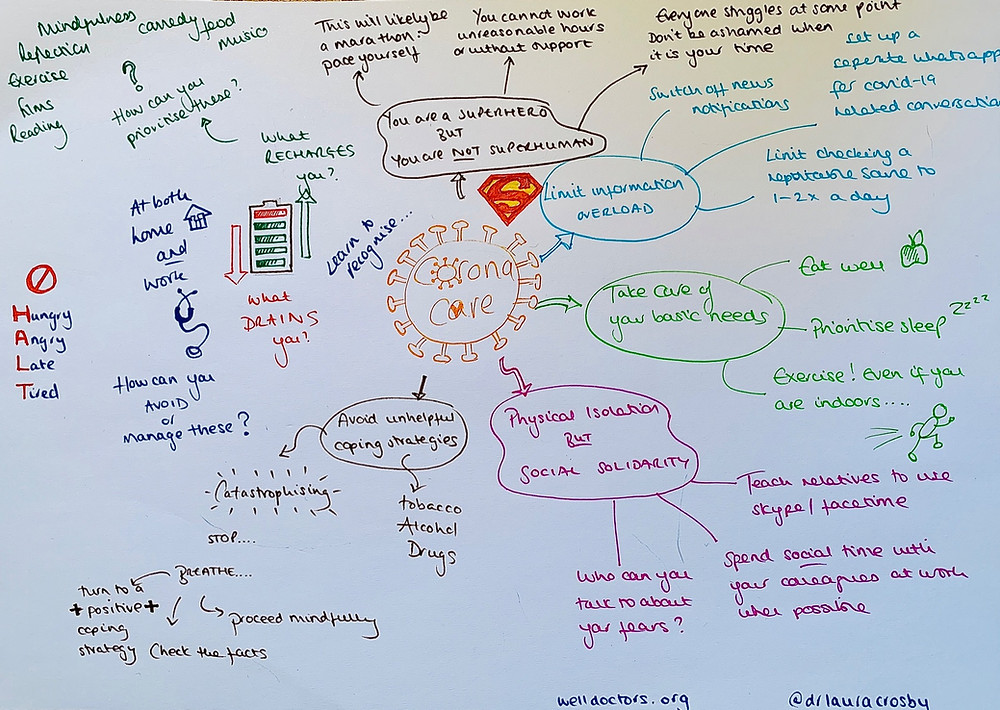 Mindfulness
comedy
food
Reflection
music
Exercise
films
Reading
?
How can you
prioritise these?
What
RECHARGES
you?
This will likely be
a marathon -
pace yourself
You cannot work
unreasonable hours
or without support
Everyone struggles at some point
Don't be ashamed when
it is your time
You are a SUPERHERO
BUT
You are NOT SUPERHUMAN
S
Switch off news
notifications
set up a
seperate whatsapp
for covid-19
related conversatio
Limit information
OVERLOAD
Limit checking a
reputable source to
1-2x a day
At both
home
and
work
Learn to
recognise...
Corona
care
What
DRAINS
you?
Hungry
Angry
Late
Tired
How can you
AVOID
or
manage these?
Take care of
your basic needs
Eat well
Prioritise sleep zzzz
Exercise! Even if you
are indoors....
Avoid unhelpful
coping strategies
Catastrophising
tobacco
Alcohol
Drugs
STOP....
BREATHE....
turn to a
+positive+
coping
strategy
Check the facts
proceed mindfully
Physical Isolation
BUT
SOCIAL SOLIDARITY
Teach relatives to use
skype/facetime
Spend social time with
your colleagues at work
when possible
Who can you
talk to about
your fears?
welldoctors.org
@drlauracrosby